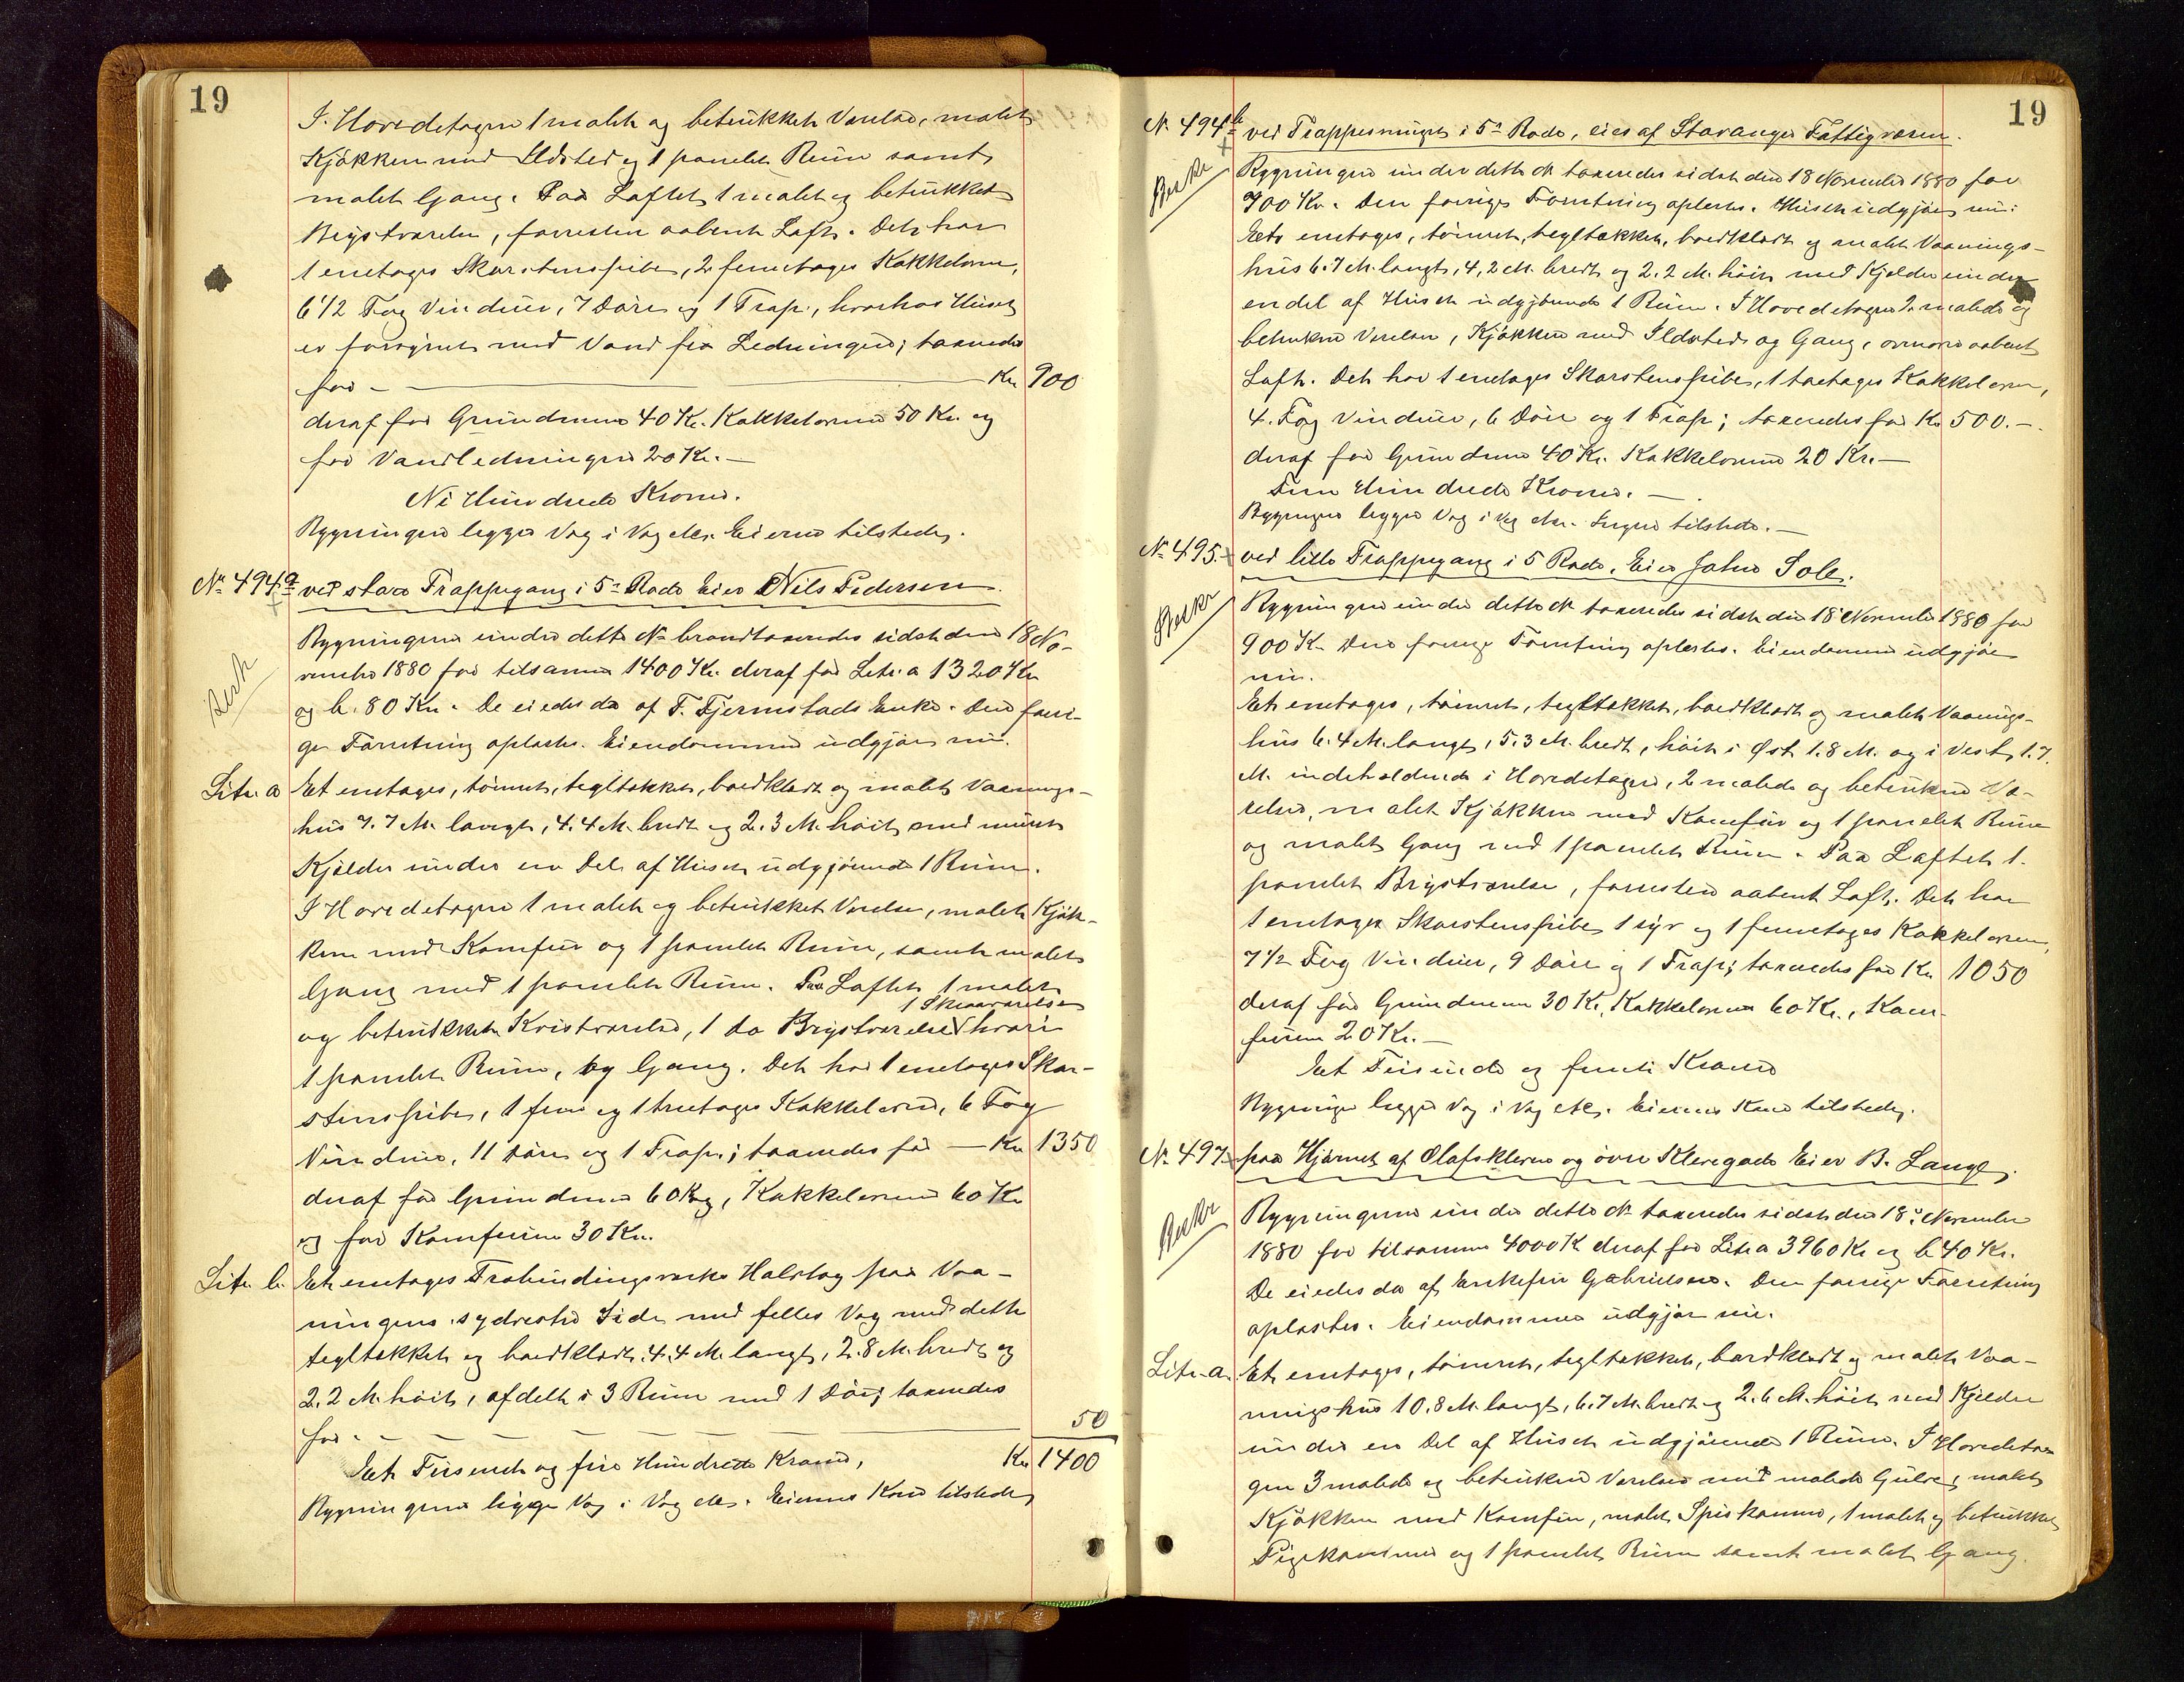 19
I Hovedetagen 1 malet og betrukket Værelse, malet
Kjøkken med Ildsted og 1 panelet Rum samt
malet Gang. Paa Loftet 1 malet og betrukket
Brystværelse, forresten aabent Loft. Det har
1 enetages Skorstenspibe, 2 femetages Kakkelovne,
6 1/2 Fag Vinduer, 7 Døre og 1 Trap, hvorhos Huset
er forsynet med Vand fra Ledningen; taxeredes
for - Kr. 900
deraf for Grundmuren 40 Kr. Kakkelovnene 50 Kr. og
for Vandledningen 20 Kr. -
Ni Hundrede Kroner.
Bygningen ligger Væg i Væg etc. Eieren tilstede.
No 494a ved store Trappegang i 5te Rode Eier Nils Pedersen.
Besk
Bygningerne under dette No brandtaxeredes sidst den 18 No-
vember 1880 for tilsammen 1400 Kr. deraf for Litr. a 1320 Kr
og b. 80 Kr. De eiedes da af T. Tjermstads Enke. Den forri-
ge Forretning oplæstes. Eiendommen udgjør nu.
Litr. a Et enetages, tømret, tegltækket, bordklædt og malet Vaanings-
hus 7.7 M. langt, 4.4 M. bredt og 2.3 M. høit med muret
Kjælder under en Del af Huset udgjørende 1 Rum.
I Hovedetagen 1 malet og betrukket Værelse, malet Kjøk-
ken med Komfur og 1 panelet Rum, samt malet
Gang med 1 panelet Rum. Paa Loftet 1 malet
og betrukket Kvistværelse, 1 do Brystværelse 1 Skraaværelse hvori
1 panelet Rum, og Gang. Det har 1 enetages Skor-
stenspibe, 1 fem og 1 treetages Kakkelovn, 6 Fag
Vinduer, 11 Døre og 1 Trap; taxeredes for - Kr. 1350
deraf for Grundmuren 60 Kr, Kakkelovnene 60 Kr
og for Komfuren 30 Kr.
Litr. b. Et enetages Trabindingsværks Halvtag paa Vaa-
ningens sydvestre Side med fælles Væg med dette
tegltækket og bordklædt, 4.4 M. langt, 2.8 M. bredt og
2.2 M. høit, afdelt i 3 Rum med 1 Dør; taxeredes
for - 50
Et Tusende og fire Hundrede Kroner, Kr. 1400
Bygningerne ligge Væg i Væg etc. Eierens Kone tilstede
19
No 494b ved Trappesmuget i 5te Rode, eies af Stavanger Fattigvæsen.
Beskr
Bygningen under dette No taxeredes sidst den 18 November 1880 for
700 Kr. Den forrige Forretning oplæstes. Huset udgjør nu:
Et enetages, tømret, tegltækket, bordklædt og malet Vaanings-
hus 6.7 M. langt, 4,2 M. bredt og 2.2 M. høit med Kjælder under
en del af Huset udgjørende 1 Rum. I Hovedetagen 2 malede og
betrukne Værelser, Kjøkken med Ildsted og Gang, ovenover aabent
Loft. Det har 1 enetages Skorstenspibe, 1 toetages Kakkelovn,
4. Fag Vinduer, 6 Døre og 1 Trap; taxeredes for Kr. 500.-
deraf for Grundmuren 40 Kr. Kakkelovnen 20 Kr. -
Fem Hundrede Kroner. -
Bygningen ligger Væg i Væg etc. Ingen tilstede. -
No 495. ved lille Trappegang i 5 Rode, Eier John Sole.
Beskr
Bygningen under dette No taxeredes sidst den 18 November 1880 for
900 Kr. Den forrige Forretning oplæstes. Eiendommen udgjør
nu.
Et enetages, tømret, tegltækket, bordklædt og malet Vaanings-
hus 6.4 M. langt, 5.3 M. bredt, høit i Øst 1.8 M. og i Vest 1.7.
M. indeholdende i Hovedetagen, 2 malede og betrukne Væ-
relser, malet Kjøkken med Komfur og 1 panelet Rum
og malet Gang med 1 panelet Rum. Paa Loftet 1.
panelet Brystværelse, forresten aabent Loft. Det har
1 enetages Skorstenspibe 1 syv og 1 femetages Kakkelovn,
7 1/2 Fag Vinduer, 9 Døre og 1 Trap; taxeredes for Kr. 1050
deraf for Grundmuren 30 Kr., Kakkelovnene 60 Kr., Kom-
furen 20 Kr. -
Et Tusinde og femti Kroner
Bygningen ligger Væg i Væg etc. Eierens Kone tilstede.
No 497. paa Hjørnet af Olafskleven og øvre Klevegade Eier B. Lange.
Beskr
Bygningerne under dette No taxeredes sidst den 18de November
1880 for tilsammen 4000 Kr deraf for Litr a 3960 Kr og b 40 Kr.
De eiedes da af Enkefru Gabrielsen. Den forrige Forretning
oplæstes. Eiendommen udgjør nu.
Litr. a. Et enetages, tømret, tegltækket, bordklædt og malet Vaa-
ningshus 10.8 M. langt, 6.7 M. bredt og 2.6 M. høit med Kjelder
under en Del af Huset udgjørende 1 Rum. I Hovedeta-
gen 3 malede og betrukne Værelser med malede Gulve, malet
Kjøkken med Komfur, malet Spiskammer, 1 malet og betrukket
Pigekammer og 1 panelet Rum samt malet Gang.